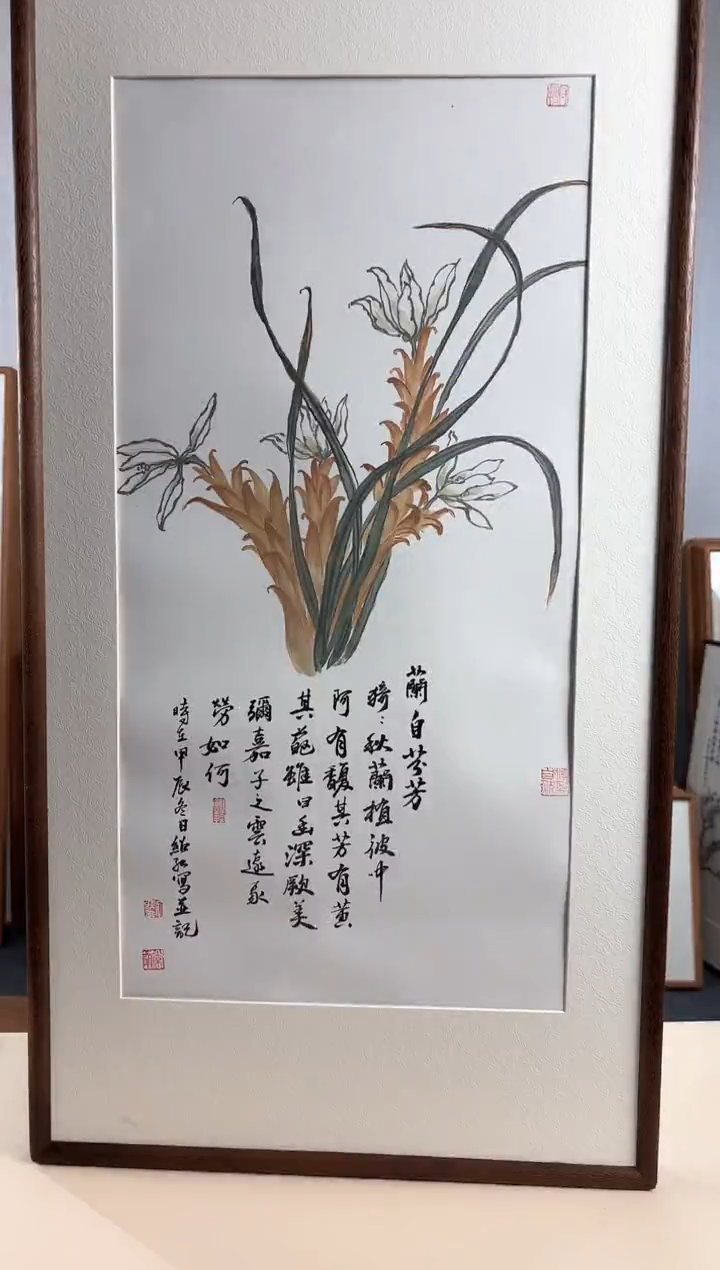 蘭自芬芳
猗〻秋蘭植彼中
阿有馥其芳有黄
其葩雖曰幽深厥美
彌嘉子之雲遠我
勞如何
時在甲辰冬日紹弘寫並記